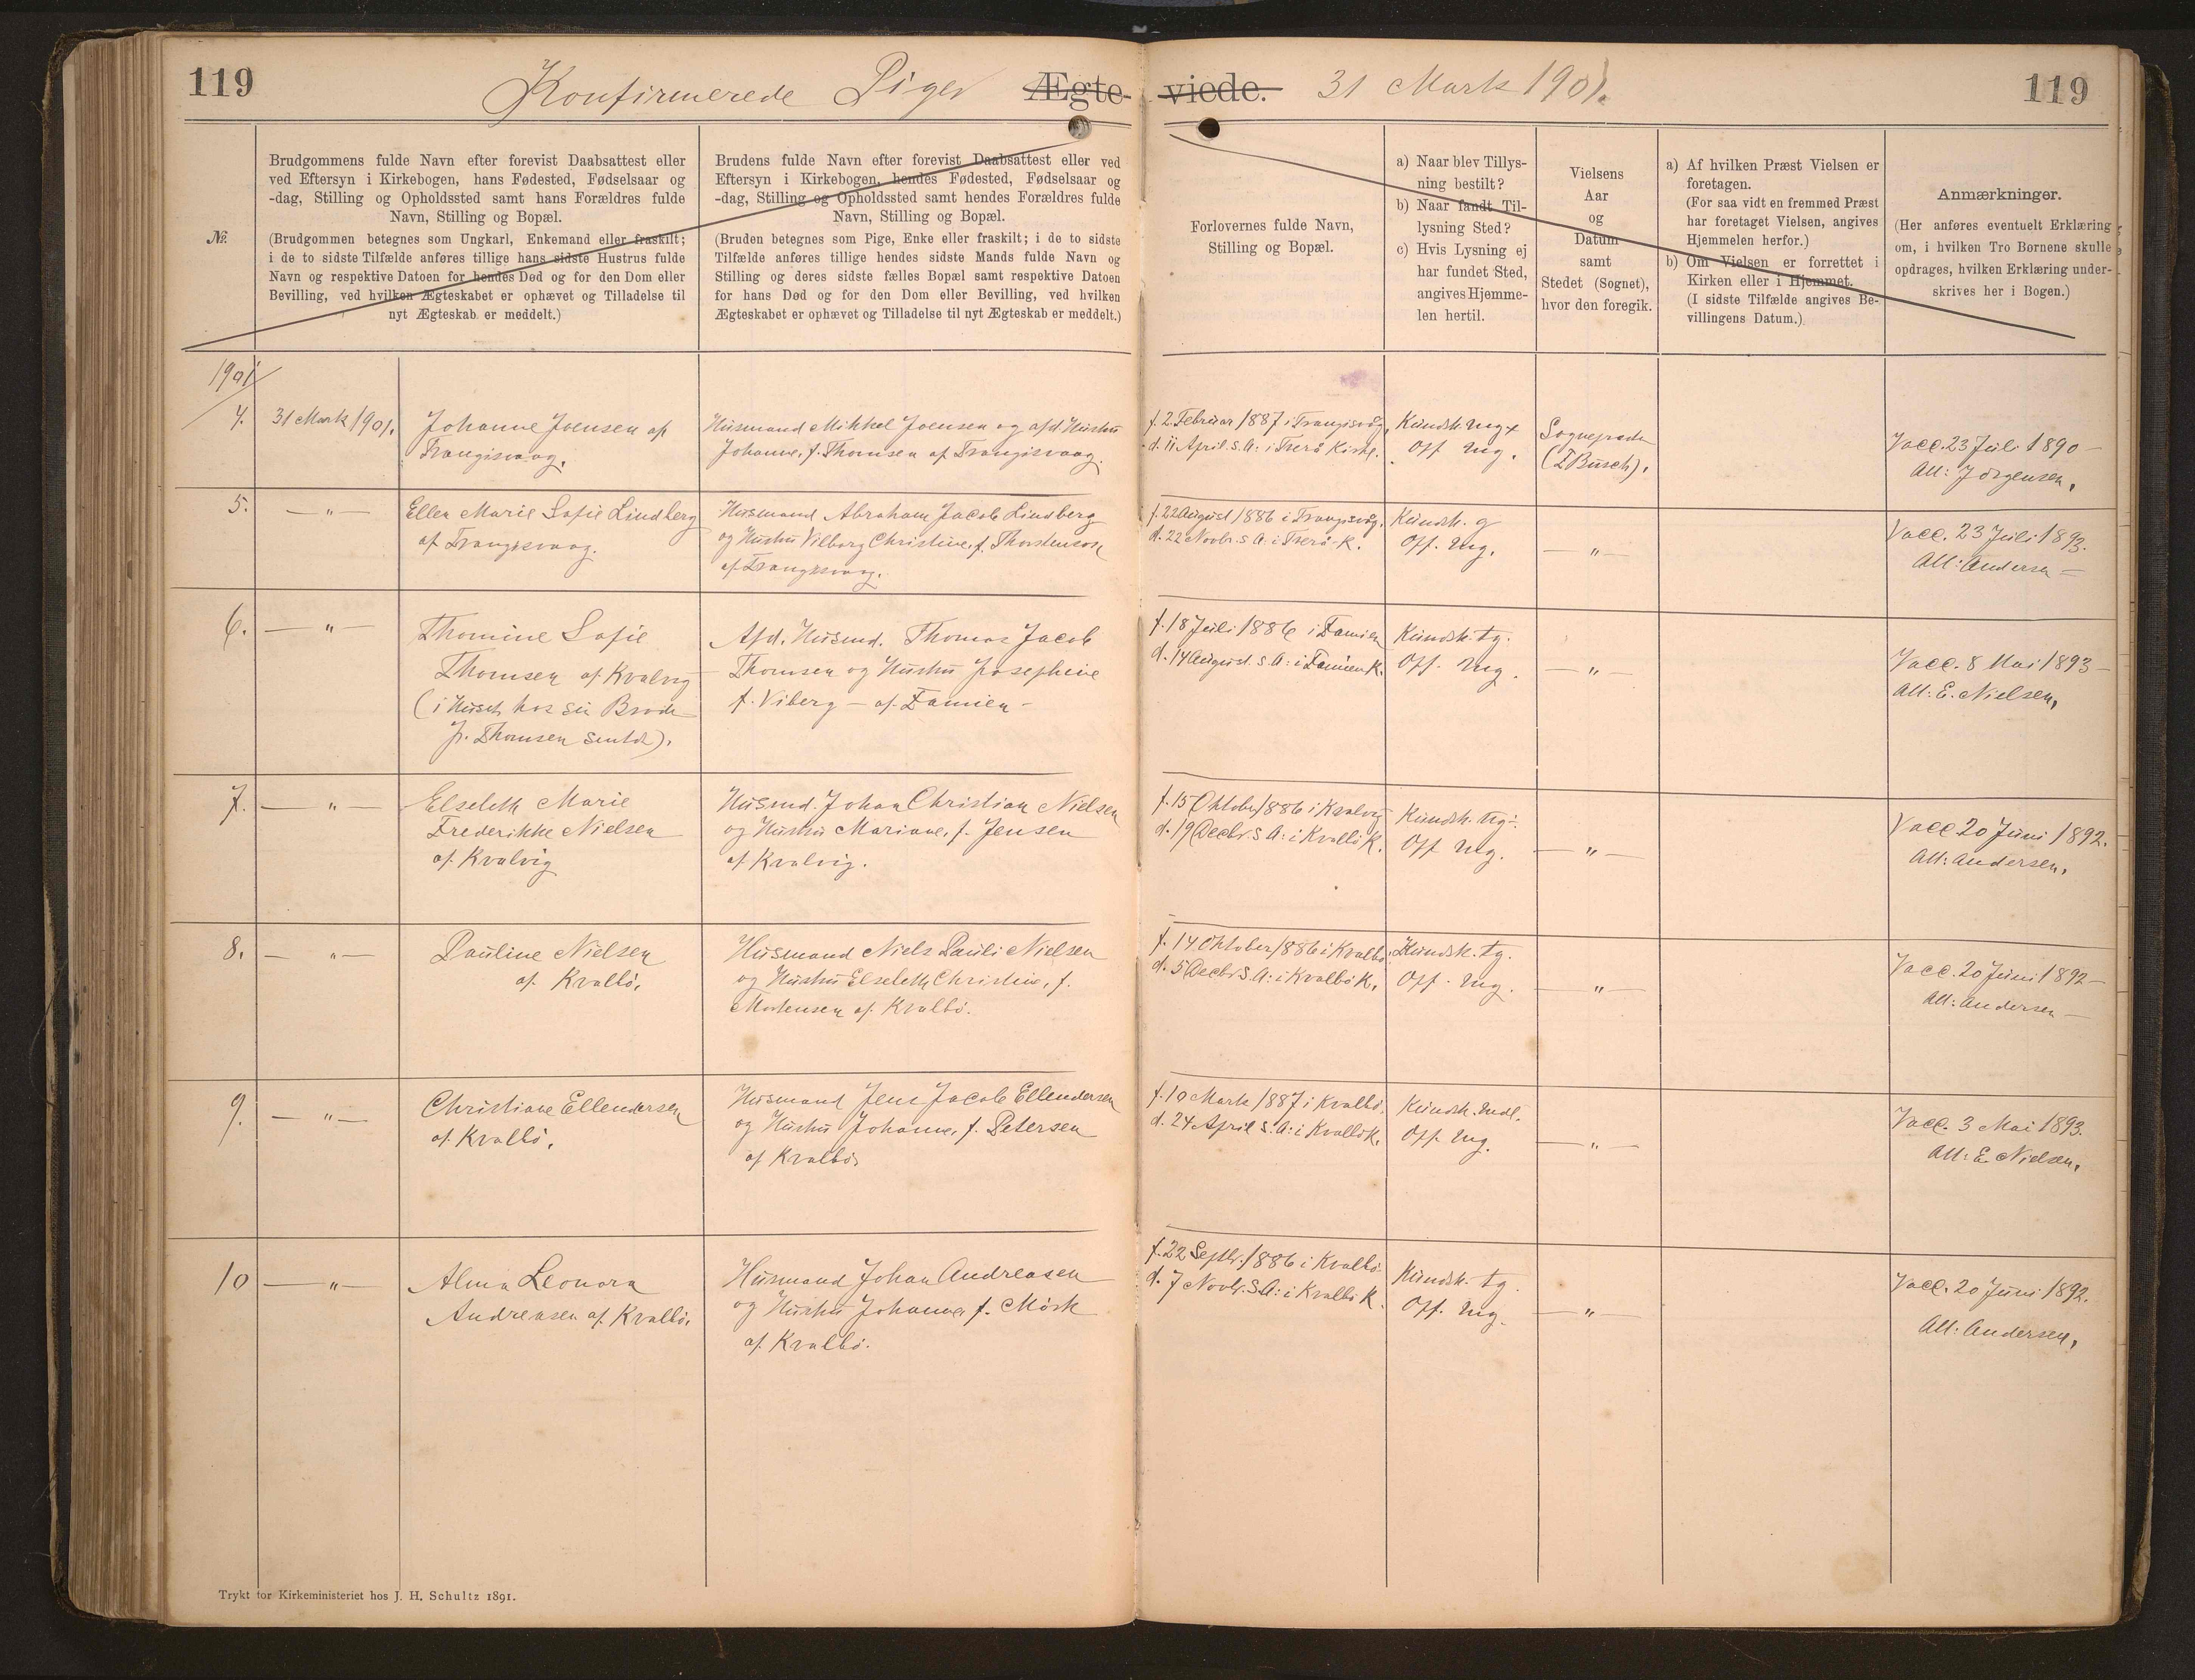 119
Konfirmerede Piger Ægte- viede. 31 Marts 1901.
119
№.
Brudgommens fulde Navn efter forevist Daabsattest eller
ved Eftersyn i Kirkebogen, hans Fødested, Fødselsaar og
-dag, Stilling og Opholdssted samt hans Forældres fulde
Navn, Stilling og Bopæl.
(Brudgommen betegnes som Ungkarl, Enkemand eller fraskilt;
i de to sidste Tilfælde anføres tillige hans sidste Hustrus fulde
Navn og respektive Datoen for hendes Død og for den Dom eller
Bevilling, ved hvilken Ægteskabet er ophævet og Tilladelse til
nyt Ægteskab er meddelt.)
Brudens fulde Navn efter forevist Daabsattest eller ved
Eftersyn i Kirkebogen, hendes Fødested, Fødselsaar og
-dag, Stilling og Opholdssted samt hendes Forældres fulde
Navn, Stilling og Bopæl.
(Bruden betegnes som Pige, Enke eller fraskilt; i de to sidste
Tilfælde anføres tillige hendes sidste Mands fulde Navn og
Stilling og deres sidste fælles Bopæl samt respektive Datoen
for hans Død og for den Dom eller Bevilling, ved hvilken
Ægteskabet er ophævet og Tilladelse til nyt Ægteskab er meddelt.)
Forlovernes fulde Navn,
Stilling og Bopæl.
a) Naar blev Tillys-
ning bestilt?
b) Naar fandt Til-
lysning Sted?
c) Hvis Lysning ej
har fundet Sted,
angives Hjemme-
len hertil.
Vielsens
Aar
og
Datum
samt
Stedet (Sognet),
hvor den foregik.
a) Af hvilken Præst Vielsen er
foretagen.
(For saa vidt en fremmed Præst
har foretaget Vielsen, angives
Hjemmelen herfor.)
b) Om Vielsen er forrettet i
Kirken eller i Hjemmet.
(I sidste Tilfælde angives Be-
villingens Datum.)
Anmærkninger.
(Her anføres eventuelt Erklæring
om, i hvilken Tro Børnene skulle
opdrages, hvilken Erklæring under-
skrives her i Bogen.)
1901
4.
31 Marts 1901.
Johanne Joensen af
Trangisvaag.
Husmand Mikkel Joensen og afd Hustru
Johanne, f. Thomsen af Trangisvaag.
f. 2. Februar 1887 i Trangisvåg,
d. 11 April s. A: i Tverå Kirke.
Kundsk. mg+
Off mg.
(E Busch).
Vacc. 23 Juli 1890 —
Att: Jörgensen.
5.
— " —
Ellen Marie Sofie Lindberg
af Trangisvaag.
Husmand Abraham Jacob Lindberg
og Hustru Vilborg Christine, f. Thorstensen
af Trangisvaag.
f. 22 August 1886 i Trangisvåg.
d. 22 Novbr. s A: i Tverå K.
Kundsk. g
Off. mg.
— " —
Vacc. 23 Juli 1893.
Att: Andersen —
6.
— " —
Thomine Sofie
Thomsen af Kvalvig
(i Huset hos sin Broder
Afd. Husmd. Thomas Jacob
Thomsen og Hustru Josephine
f. Viberg — af Famien —
f. 18 Juli 1886 i Famien
d. 14 August s. A: i Famien K.
Kundsk. tg.
Off. mg.
— " —
Vacc. 8 Mai 1893 —
Att: E. Nielsen.
7.
— " —
Elsebeth Marie
Frederikke Nielsen
af Kvalvig
Husmd. Johan Christian Nielsen
og Hustru Mariane, f. Jensen
af Kvalvig.
f. 15 Oktober 1886 i Kvalvig
d. 19 Decbr. s A: i Kvalbö K.
Kundsk. mg÷
Off mg.
— " —
Vacc 20 Juni 1892.
Att: Andersen.
8.
— " —
Pauline Nielsen
af Kvalbö.
Husmand Niels Pauli Nielsen
og Hustru Elsebeth Christine, f.
Mortensen af Kvalbö.
f. 14 Oktober 1886 i Kvalbö.
d. 5 Decbr. s. A: i Kvalbö K.
Kundsk. tg.
Off. mg.
— " —
Vacc. 20 Juni 1892 —
Att: Andersen —
9.
— " —
Christiane Ellendersen
af Kvalbö.
Husmand Jens Jacob Ellendersen
og Hustru Johanne, f. Petersen
af Kvalbö.
f. 10 Marts 1887 i Kvalbö.
d. 24 April s. A: i Kvalbö K.
Kundsk. mdl.
Off. mg.
— " —
Vacc. 3 Mai 1893.
Att: E Nielsen.
10
— " —
Alma Leonora
Andreasen af Kvalbö.
Husmand Johan Andreasen
og Hustru Johanne, f. Mörk
af Kvalbö.
f. 22 Septbr. 1886 i Kvalbö.
d. 7 Novbr. s. A: i Kvalbö K.
Kundsk. tg.
Off. mg.
— " —
Vacc. 20 Juni 1892.
Att: Andersen.
Trykt for Kirkeministeriet hos J. H. Schultz 1891.